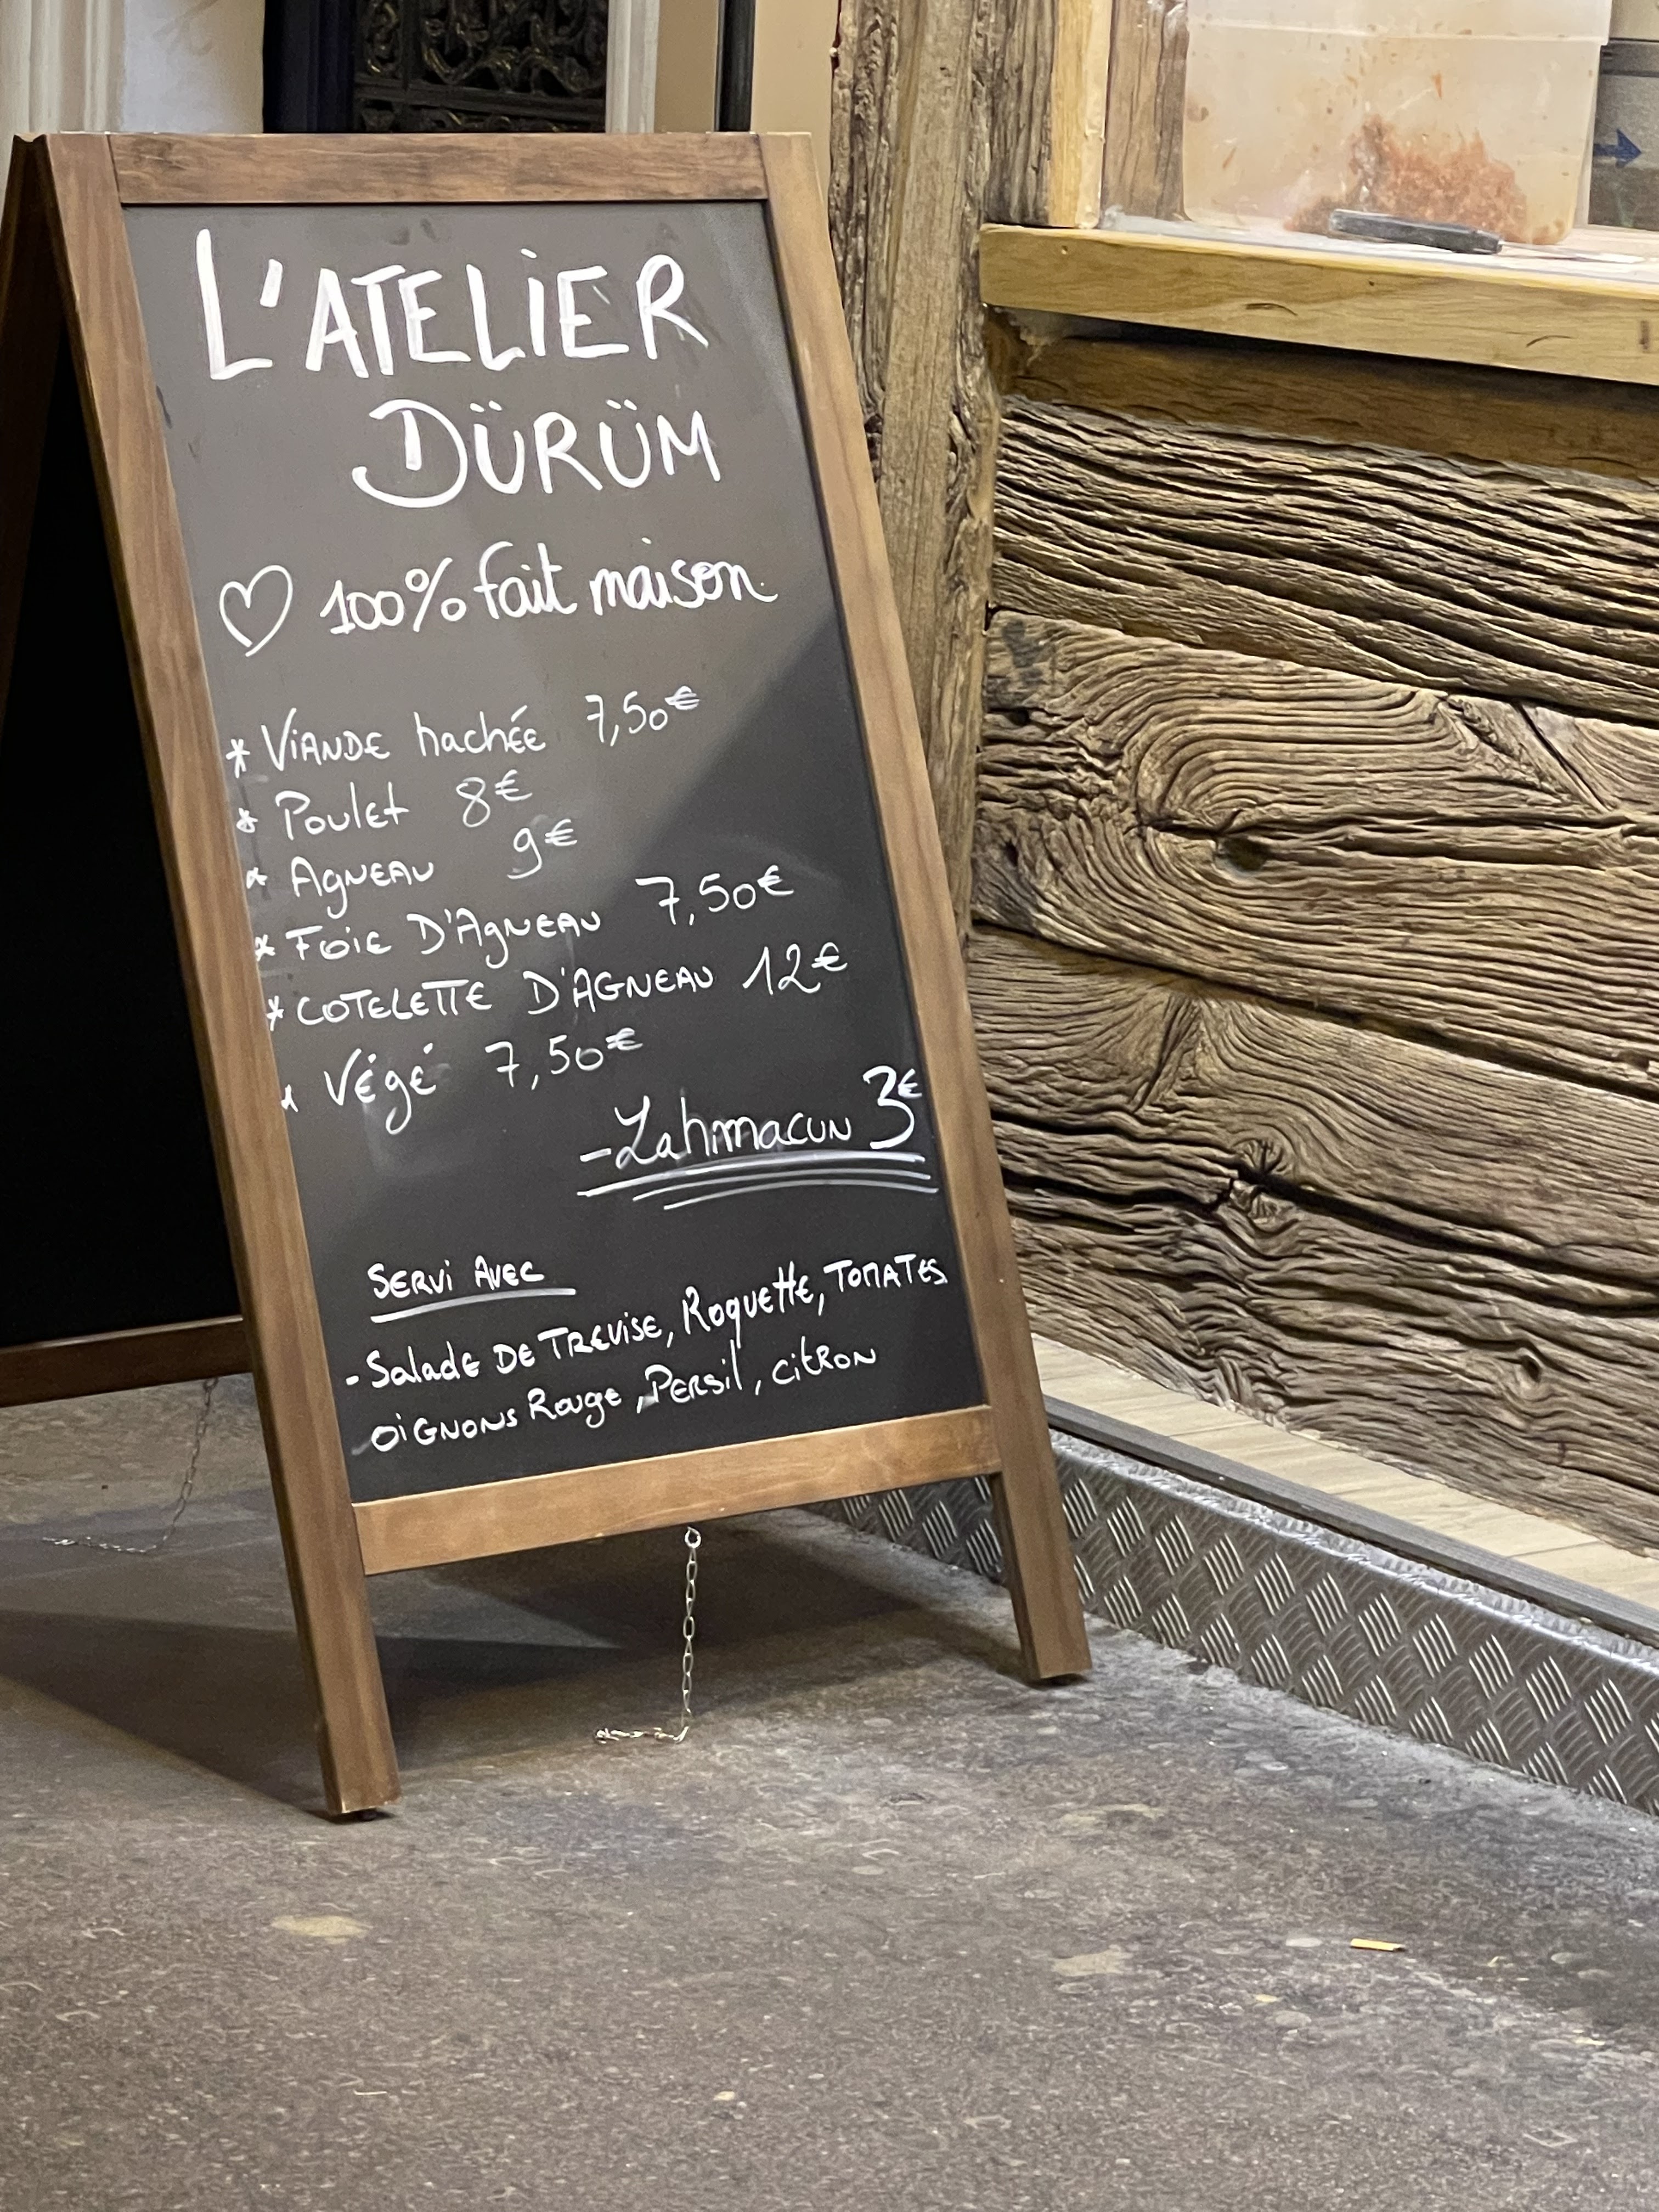 L'ATELIER
DÜRÜM
♡ 100% fait maison
* VIANDE hachée 7,50€
* Poulet 8€
* AgNEAU 9€
* FOIE D'AgNEAU 7,50€
* COTELETTE D'AGNEAU 12€
* Végé 7,50€
- Lahmacun 3€
SERVI AVEC
- Salade DE TREVISE, Roquette, TOMATES
OIGNONS Rouge, PERSil, citRON